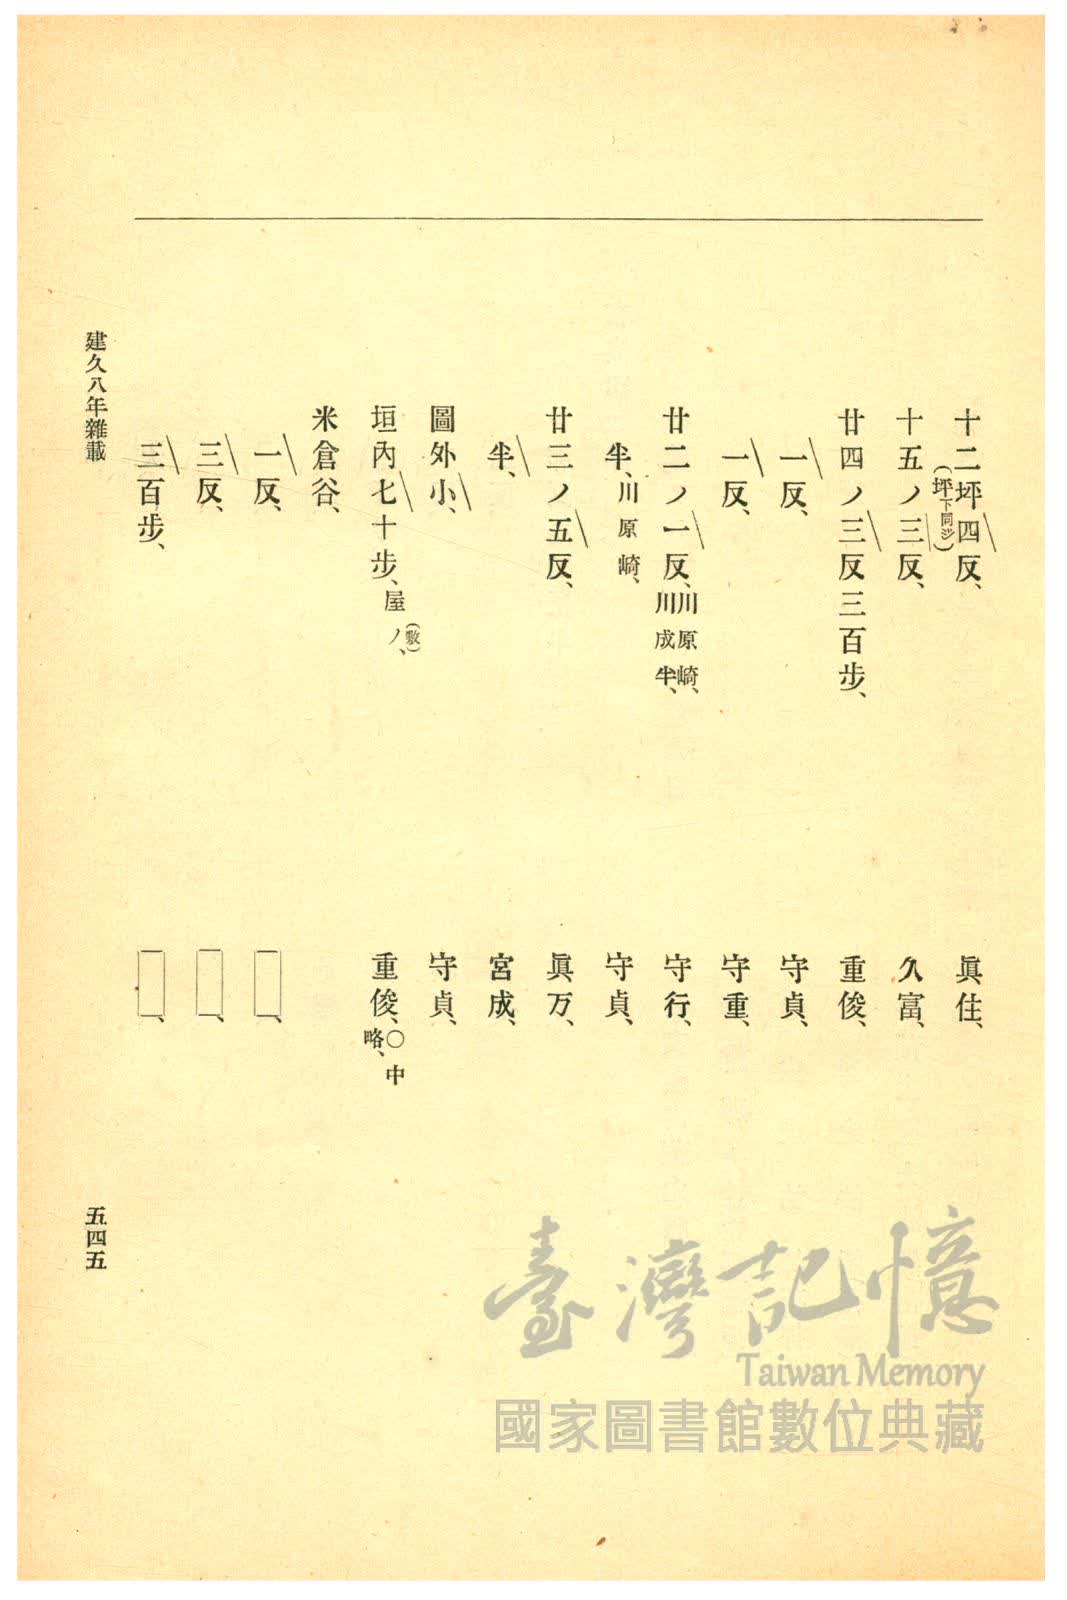 十二坪四反、 眞住、
(坪下同ジ)
十五ノ三反、 久富、
廿四ノ三反三百步、 重俊、
一反、 守貞、
一反、 守重、
廿二ノ一反、川原崎、川成半、 守行、
半、川原崎、 守貞、
廿三ノ五反、 眞万、
半、 宮成、
圖外小、 守貞、
垣內七十步、屋ノ、(敷) 重俊、○中略、
米倉谷、
一反、 、
三反、 、
三百步、 、
建久八年雜載
五四五
臺灣記憶
Taiwan Memory
國家圖書館數位典藏